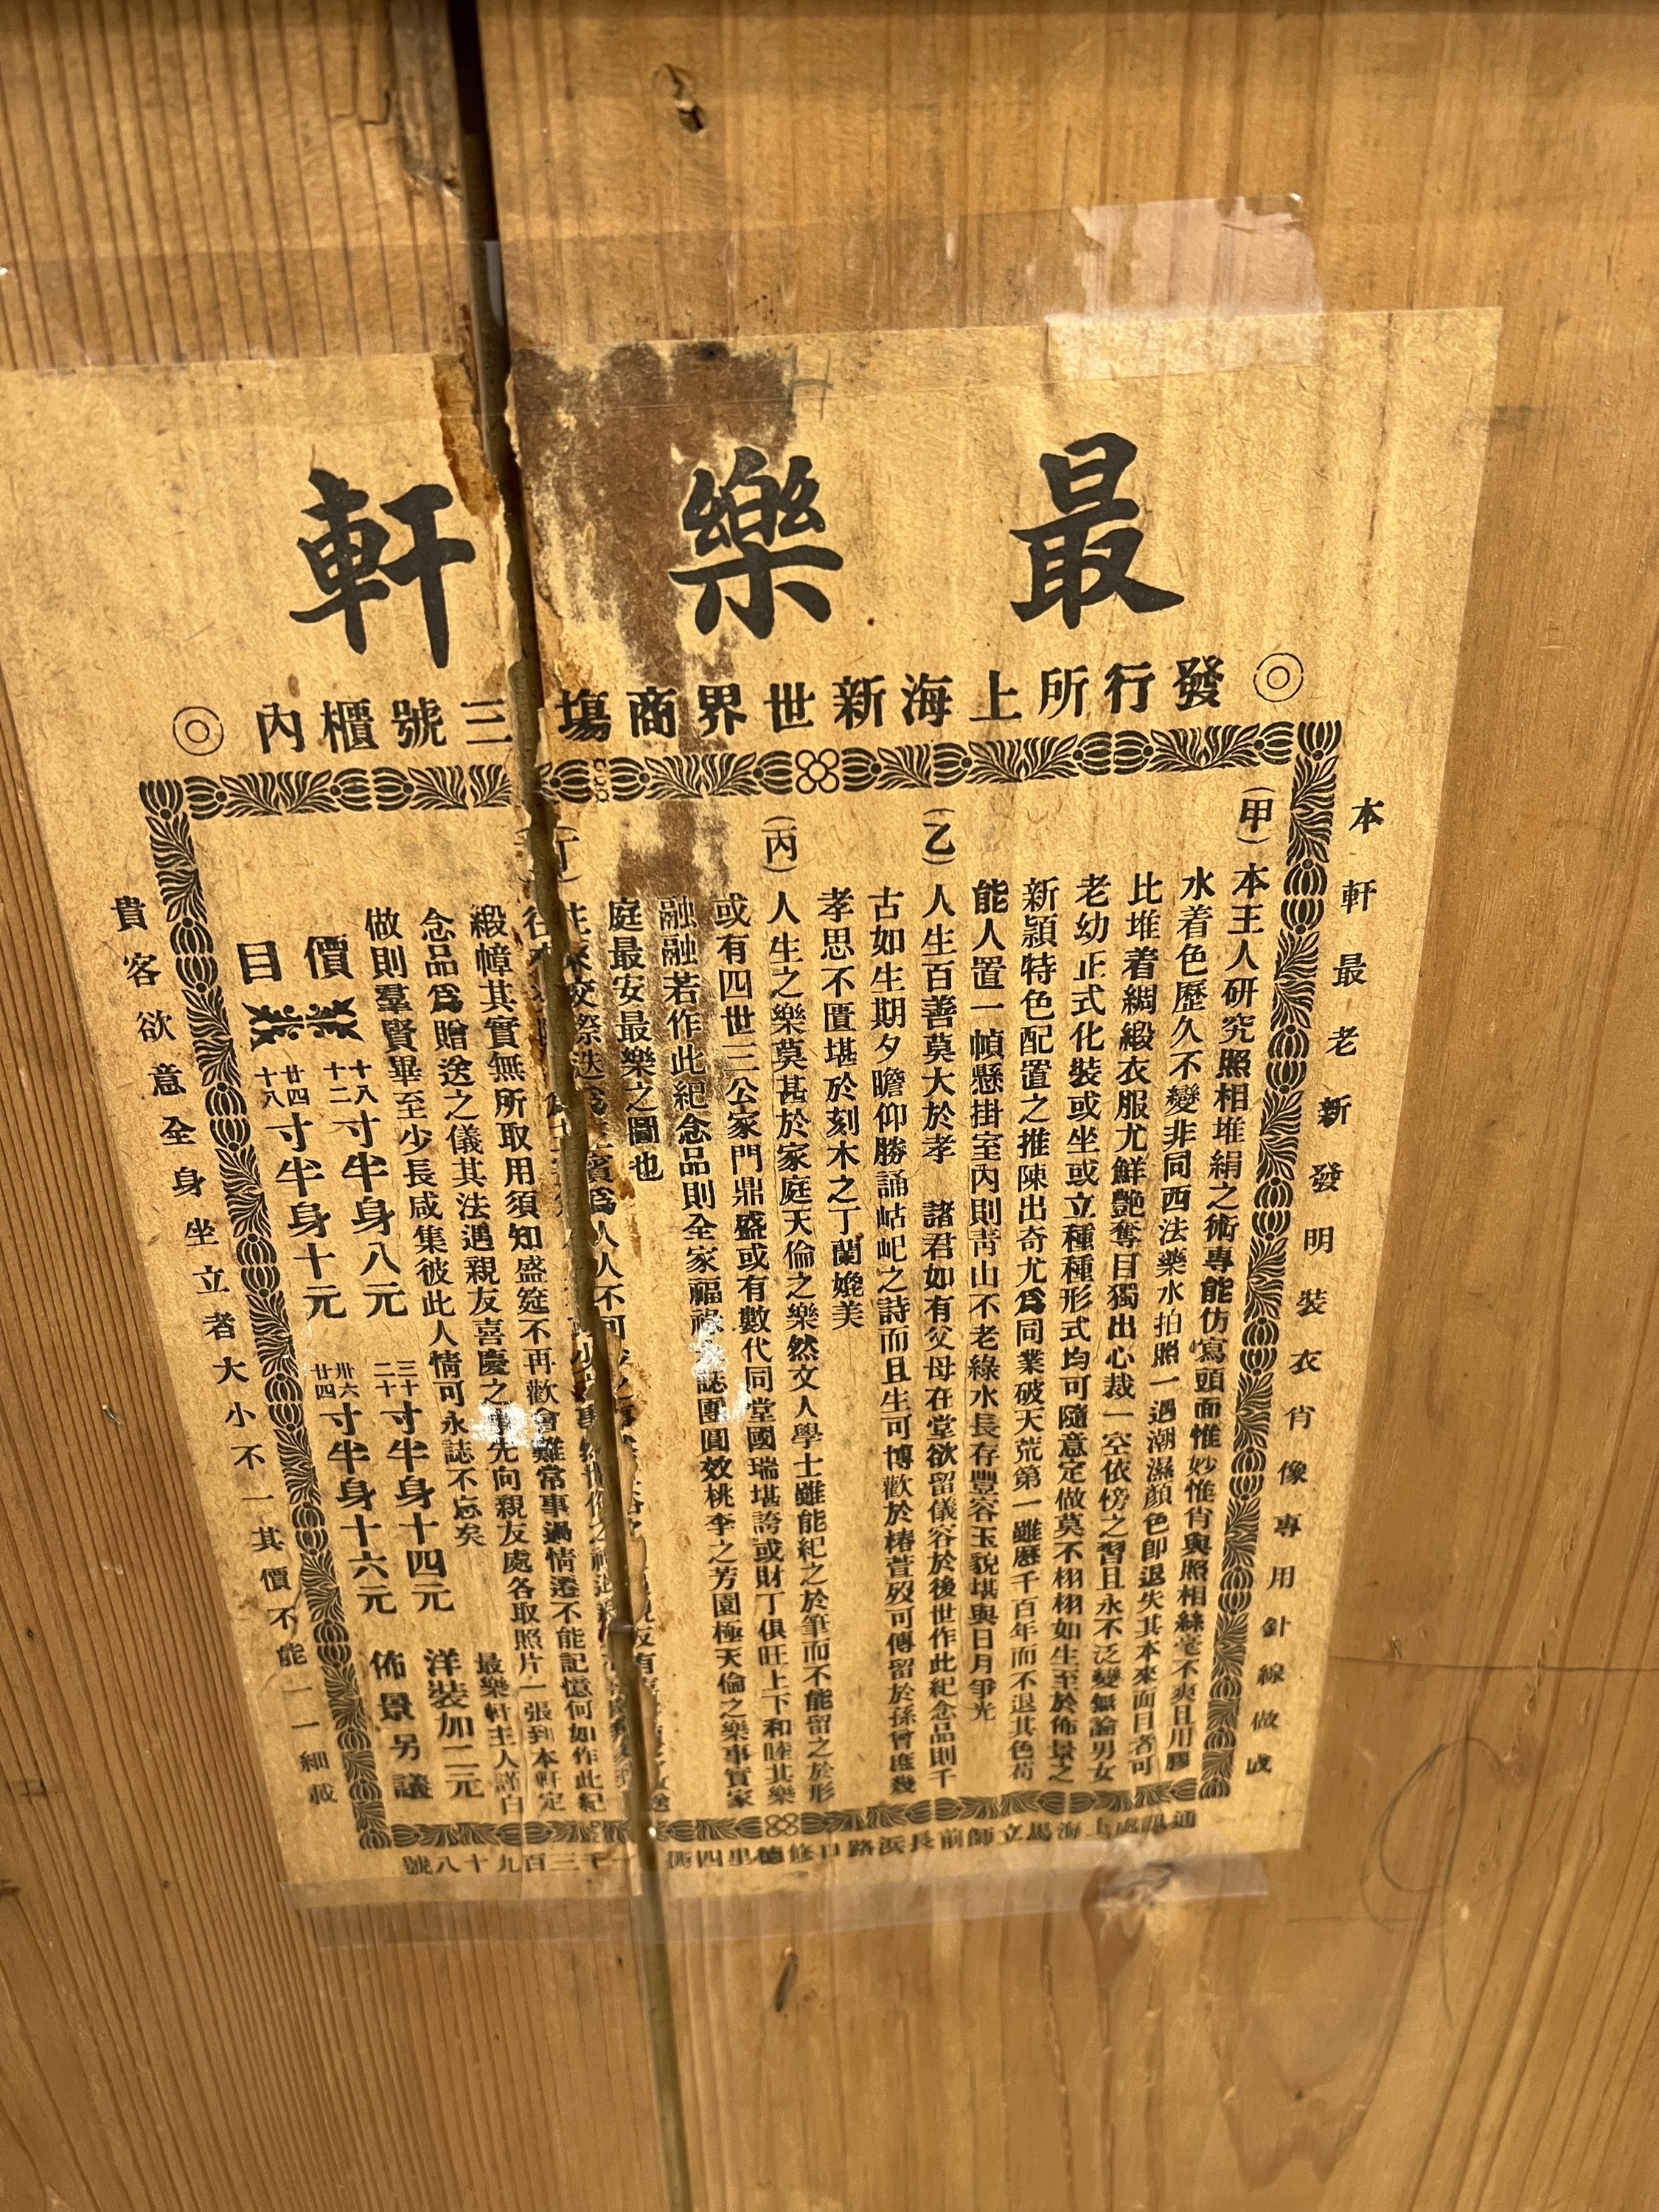 最樂軒
◎發行所上海新世界商塲三號櫃內◎
本軒最老新發明裝衣肖像專用針線做成
(甲)本主人研究照相堆絹之術專能仿寫頭面惟妙惟肖與照相絲毫不爽且用膠
水着色歷久不變非同西法藥水拍照一遇潮濕顏色卽退失其本來面目者可
比堆着綢緞衣服尤鮮艷奪目獨出心裁一空依傍之習且永不泛變無論男女
老幼正式化裝或坐或立種種形式均可隨意定做莫不栩栩如生至於佈景之
新穎特色配置之推陳出奇尤爲同業破天荒第一雖歷千百年而不退其色苟
能人置一幀懸掛室內則靑山不老綠水長存豐容玉貌堪與日月爭光
(乙)人生百善莫大於孝 諸君如有父母在堂欲留儀容於後世作此紀念品則千
古如生期夕瞻仰勝誦岵屺之詩而且生可博歡於椿萱歿可傳留於孫曾庶幾
孝思不匱堪於刻木之丁蘭媲美
(丙)人生之樂莫甚於家庭天倫之樂然文人學士雖能紀之於筆而不能留之於形
或有四世三公家門鼎盛或有數代同堂國瑞堪誇或財丁俱旺上下和睦其樂
融融若作此紀念品則全家福祿誌團圓效桃李之芳園極天倫之樂事實家
庭最安最樂之圖也
(丁)交際人人不可親友有
緞幛其實無所取用須知盛筵不再歡會難常事過情遷不能記憶何如作此紀
念品爲贈送之儀其法遇親友喜慶之事先向親友處各取照片一張到本軒定
做則羣賢畢至少長咸集彼此人情可永誌不忘矣
最樂軒主人謹白
價目
十八十二寸半身八元
廿四十八寸半身十元
三十二十寸半身十四元
卅六廿四寸半身十六元
洋裝加二元
佈景另議
貴客欲意全身坐立者大小不一其價不能一一細載
通訊處上海馬立師前長浜路口修德里四衖一千三百九十八號